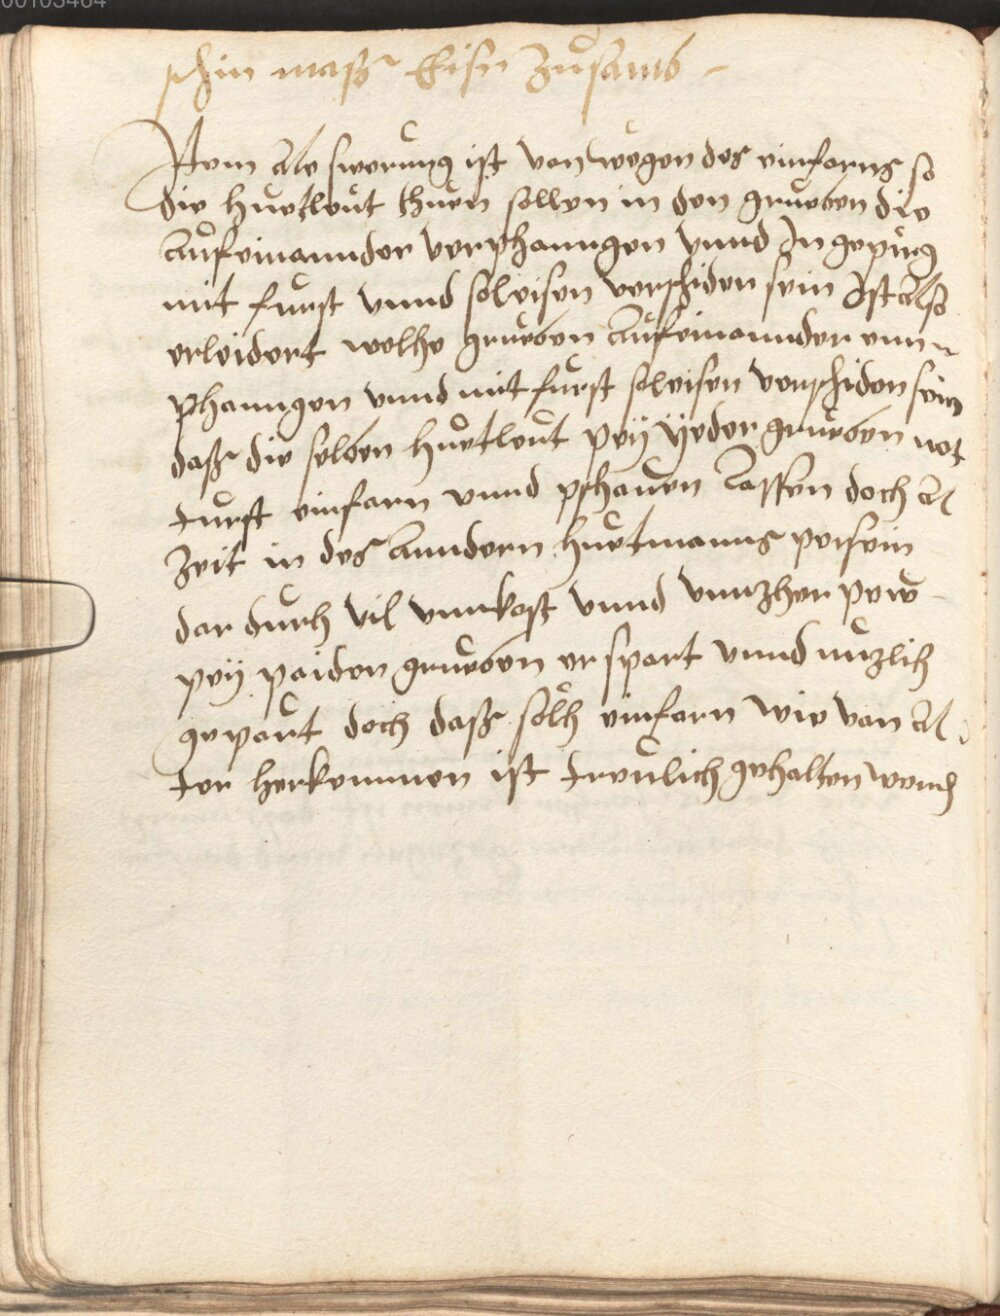 00103464
schin maß Eisn Zusamb
Item Als swerung ist von wegen des einfarns so
die huetleut thuen sollen in den grueben die
Aufeinannder verphanngen vnnd In gepirg
mit furst vnnd soleisen verschiden sein Ist also
erleidert welhe grueben Aufeinannder enn
phanngen vnnd mit furst soleisen verschiden sein
daß die selben huetleut pey yeder grueben not
turfft einfarn vnnd pschauen lassen doch Al
zeit in des Anndern huetmanns peisein
dar durh vil vnnkost vnnd vnnzher pew
pey paiden grueben erspart vnnd nuzlich
gepaut doch daß solh einfarn wie van Al
ter herkommen ist treulich gehalten werd